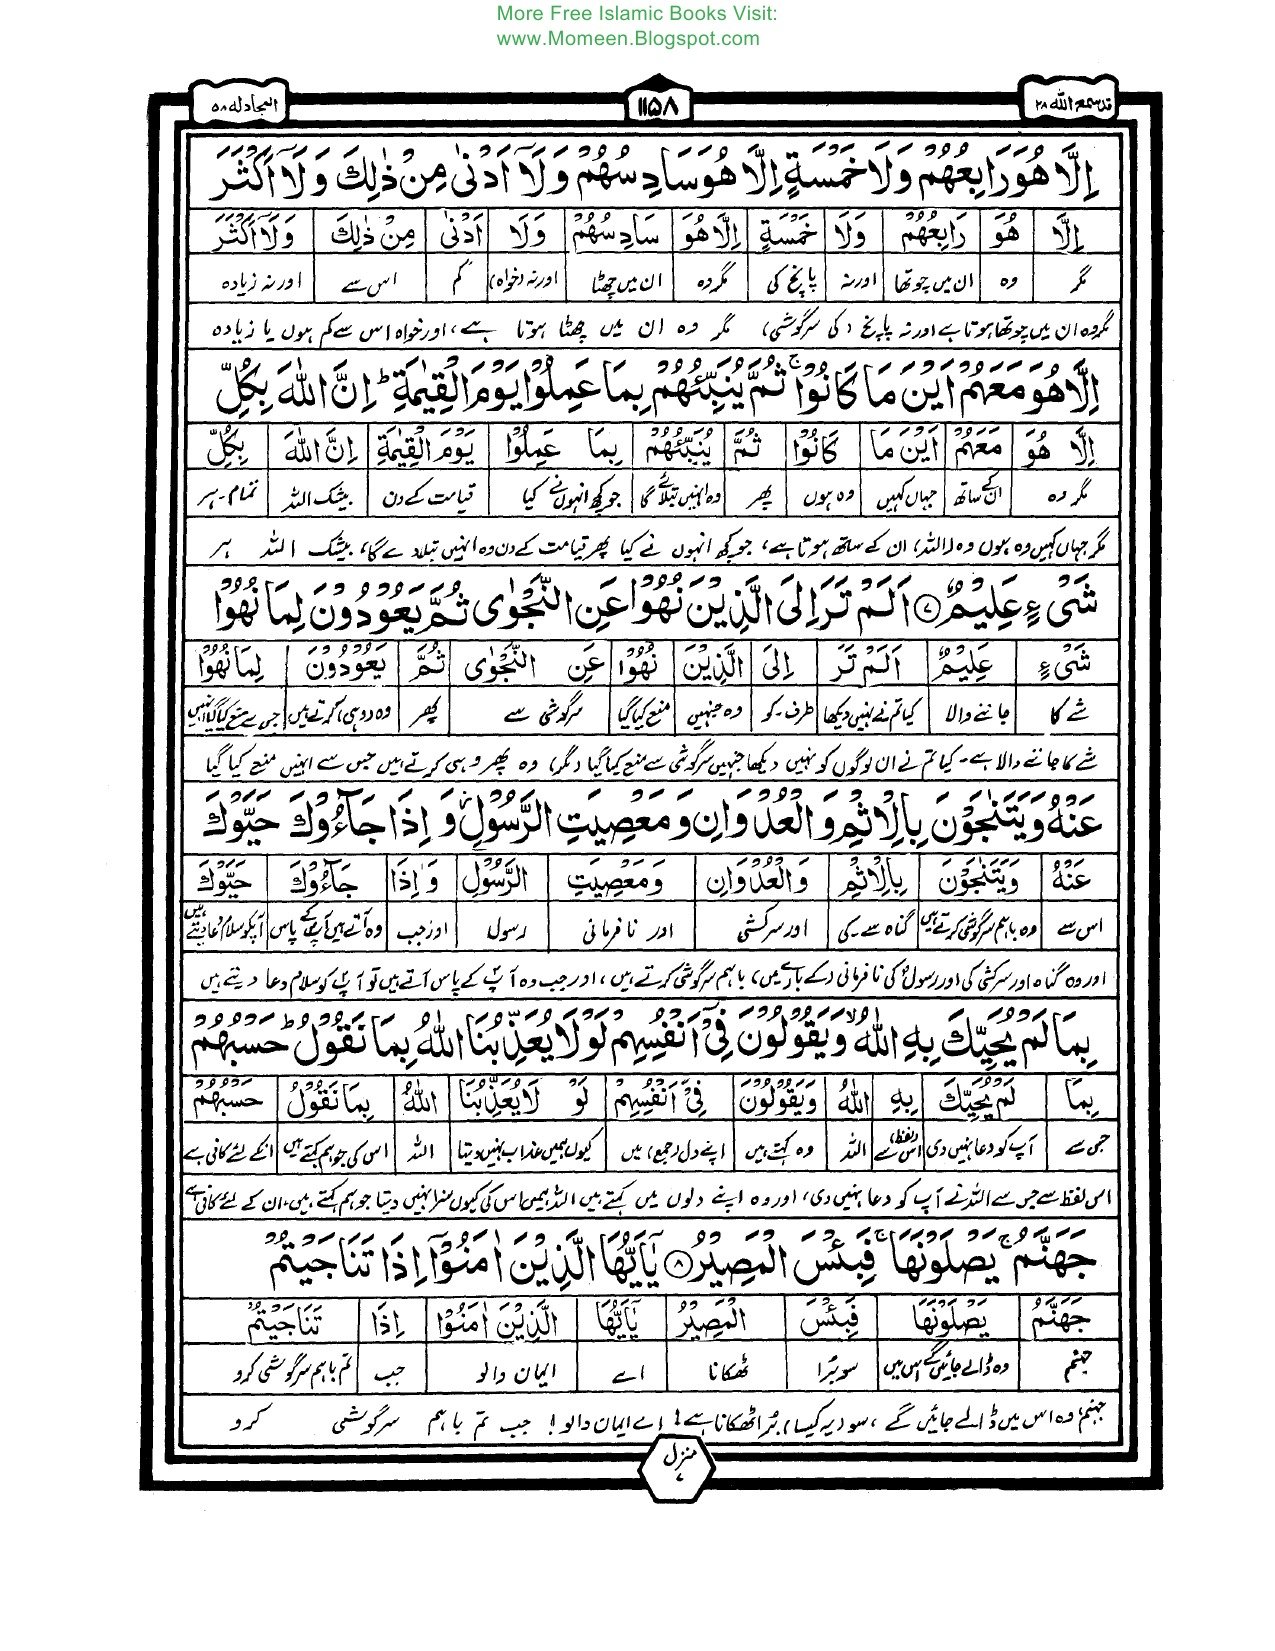 More Free Islamic Books Visit:
www.Momeen.Blogspot.com
قد سمع الله ۲۸
۱۱۵۸
المجادلة ۵۸
اِلَّا هُوَ رَابِعُهُمْ وَلَا خَمْسَةٍ اِلَّا هُوَ سَادِسُهُمْ وَلَآ اَدْنٰى مِنْ ذٰلِكَ وَلَآ اَكْثَرَ
اِلَّا هُوَ رَابِعُهُمْ وَلَا خَمْسَةٍ اِلَّا هُوَ سَادِسُهُمْ وَلَا اَدْنٰى مِنْ ذٰلِكَ وَلَآ اَكْثَرَ
مگر وہ ان میں چوتھا اور نہ پانچ کی مگر وہ ان میں چھٹا اور نہ (خواہ) کم اس سے اور نہ زیادہ
مگر وہ ان میں چوتھا ہوتا ہے اور نہ پانچ (کی سرگوشی) مگر وہ ان میں چھٹا ہوتا ہے، اور خواہ اس سے کم ہوں یا زیادہ
اِلَّا هُوَ مَعَهُمْ اَيْنَ مَا كَانُوْا ۚ ثُمَّ يُنَبِّئُهُمْ بِمَا عَمِلُوْا يَوْمَ الْقِيٰمَةِ ؕ اِنَّ اللّٰهَ بِكُلِّ
اِلَّا هُوَ مَعَهُمْ اَيْنَ مَا كَانُوْا ثُمَّ يُنَبِّئُهُمْ بِمَا عَمِلُوْا يَوْمَ الْقِيٰمَةِ اِنَّ اللّٰهَ بِكُلِّ
مگر وہ ان کے ساتھ جہاں کہیں وہ ہوں پھر وہ انہیں بتلائے گا جو کچھ انہوں نے کیا قیامت کے دن بیشک اللہ تمام۔ہر
مگر جہاں کہیں وہ ہوں وہ (اللہ) ان کے ساتھ ہوتا ہے، جو کچھ انہوں نے کیا پھر قیامت کے دن وہ انہیں بتلا دے گا، بیشک اللہ ہر
شَيْءٍ عَلِيْمٌ ۷ اَلَمْ تَرَ اِلَى الَّذِيْنَ نُهُوْا عَنِ النَّجْوٰى ثُمَّ يَعُوْدُوْنَ لِمَا نُهُوْا
شَيْءٍ عَلِيْمٌ اَلَمْ تَرَ اِلَى الَّذِيْنَ نُهُوْا عَنِ النَّجْوٰى ثُمَّ يَعُوْدُوْنَ لِمَا نُهُوْا
شے کا جاننے والا کیا تم نے نہیں دیکھا طرف۔کو وہ جنہیں منع کیا گیا سرگوشی سے پھر وہ (وہی) کرتے ہیں جس سے منع کیا گیا انہیں
شے کا جاننے والا ہے۔ کیا تم نے ان لوگوں کو نہیں دیکھا جنہیں سرگوشی سے منع کیا گیا (مگر) وہ پھر وہی کرتے ہیں جس سے انہیں منع کیا گیا
عَنْهُ وَيَتَنٰجَوْنَ بِالْاِثْمِ وَالْعُدْوَانِ وَمَعْصِيَتِ الرَّسُوْلِ ۫ وَاِذَا جَآءُوْكَ حَيَّوْكَ
عَنْهُ وَيَتَنٰجَوْنَ بِالْاِثْمِ وَالْعُدْوَانِ وَمَعْصِيَتِ الرَّسُوْلِ وَاِذَا جَآءُوْكَ حَيَّوْكَ
اس سے وہ باہم سرگوشی کرتے ہیں گناہ سے۔کی اور سرکشی اور نافرمانی رسول اور جب وہ آتے ہیں آپؐ کے پاس آپؐ کو سلام دعا دیتے ہیں
اور وہ گناہ اور سرکشی کی اور رسولؐ کی نافرمانی (کے بارے میں) باہم سرگوشی کرتے ہیں، اور جب وہ آپؐ کے پاس آتے ہیں تو آپؐ کو سلام دعا دیتے ہیں
بِمَا لَمْ يُحَيِّكَ بِهِ اللّٰهُ ۙ وَيَقُوْلُوْنَ فِيْٓ اَنْفُسِهِمْ لَوْلَا يُعَذِّبُنَا اللّٰهُ بِمَا نَقُوْلُ ؕ حَسْبُهُمْ
بِمَا لَمْ يُحَيِّكَ بِهِ اللّٰهُ وَيَقُوْلُوْنَ فِيْٓ اَنْفُسِهِمْ لَوْ لَا يُعَذِّبُنَا اللّٰهُ بِمَا نَقُوْلُ حَسْبُهُمْ
جس سے آپ کو دعا نہیں دی اس (لفظ) سے اللہ وہ کہتے ہیں اپنے دل (جمع) میں کیوں ہمیں عذاب نہیں دیتا اللہ اس کی جو ہم کہتے ہیں انکے لئے کافی ہے
اس لفظ سے جس سے اللہ نے آپ کو دعا نہیں دی، اور وہ اپنے دلوں میں کہتے ہیں اللہ ہمیں اس کی کیوں سزا نہیں دیتا جو ہم کہتے ہیں، ان کے لئے کافی ہے
جَهَنَّمُ ۚ يَصْلَوْنَهَا ۚ فَبِئْسَ الْمَصِيْرُ ۸ يٰٓاَيُّهَا الَّذِيْنَ اٰمَنُوْٓا اِذَا تَنَاجَيْتُمْ
جَهَنَّمُ يَصْلَوْنَهَا فَبِئْسَ الْمَصِيْرُ يٰٓاَيُّهَا الَّذِيْنَ اٰمَنُوْٓا اِذَا تَنَاجَيْتُمْ
جہنم وہ ڈالے جائیں گے اس میں سو بُرا ٹھکانا اے ایمان والو جب تم باہم سرگوشی کرو
جہنم، وہ اس میں ڈالے جائیں گے، سو (یہ کیسا) بُرا ٹھکانا ہے! اے ایمان والو! جب تم باہم سرگوشی کرو
منزل ۷